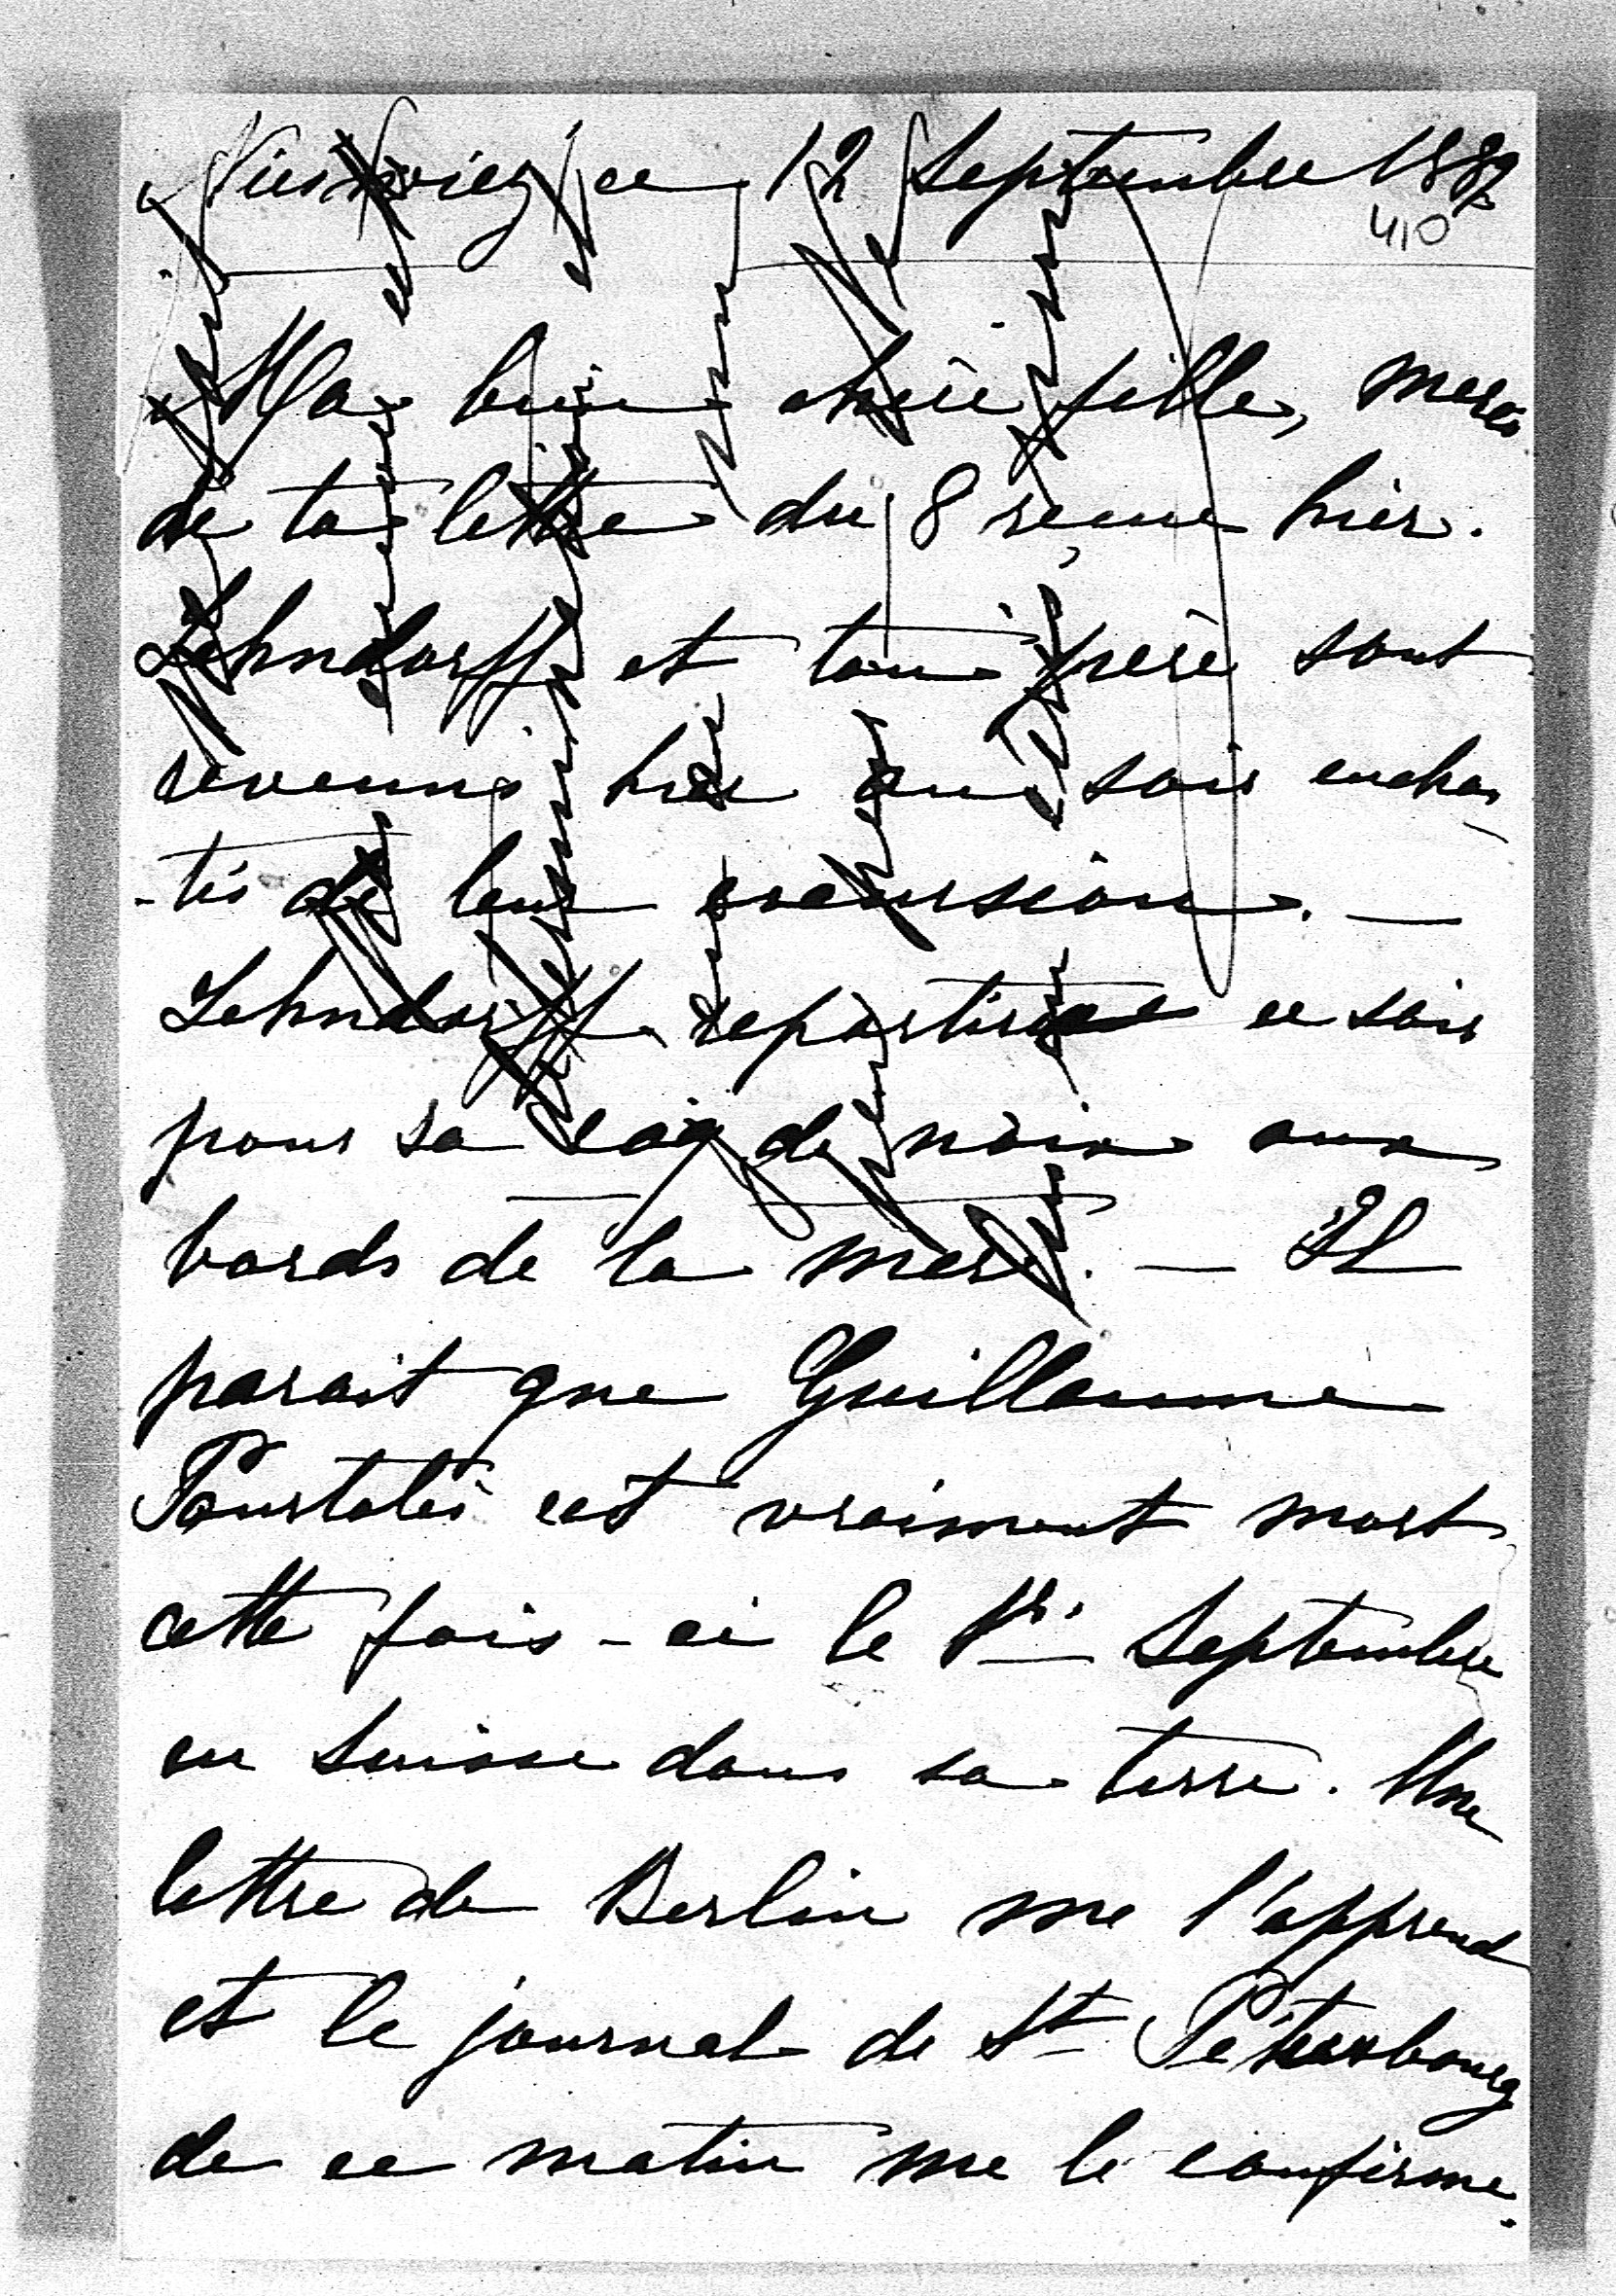 Nieswiez, ce 12 Septembre 1889
410
Ma bien chère fille, merci
de ta lettre du 8 recue hier.
Lehndorff et ton père sont
revenus hier au soir enchan
-tés de leur excursion. —
Lehndorff repartira ce soir
pour sa de noix aux
bords de la mer. — Il
parait que Guillaume
Pourtalès est vraiment mort
cette fois-ci le 1r. Septembre
en Suisse dans sa terre. Une
lettre de Berlin me l'apprend
et le journal de St Pétersbourg
de ce matin me le confirme.